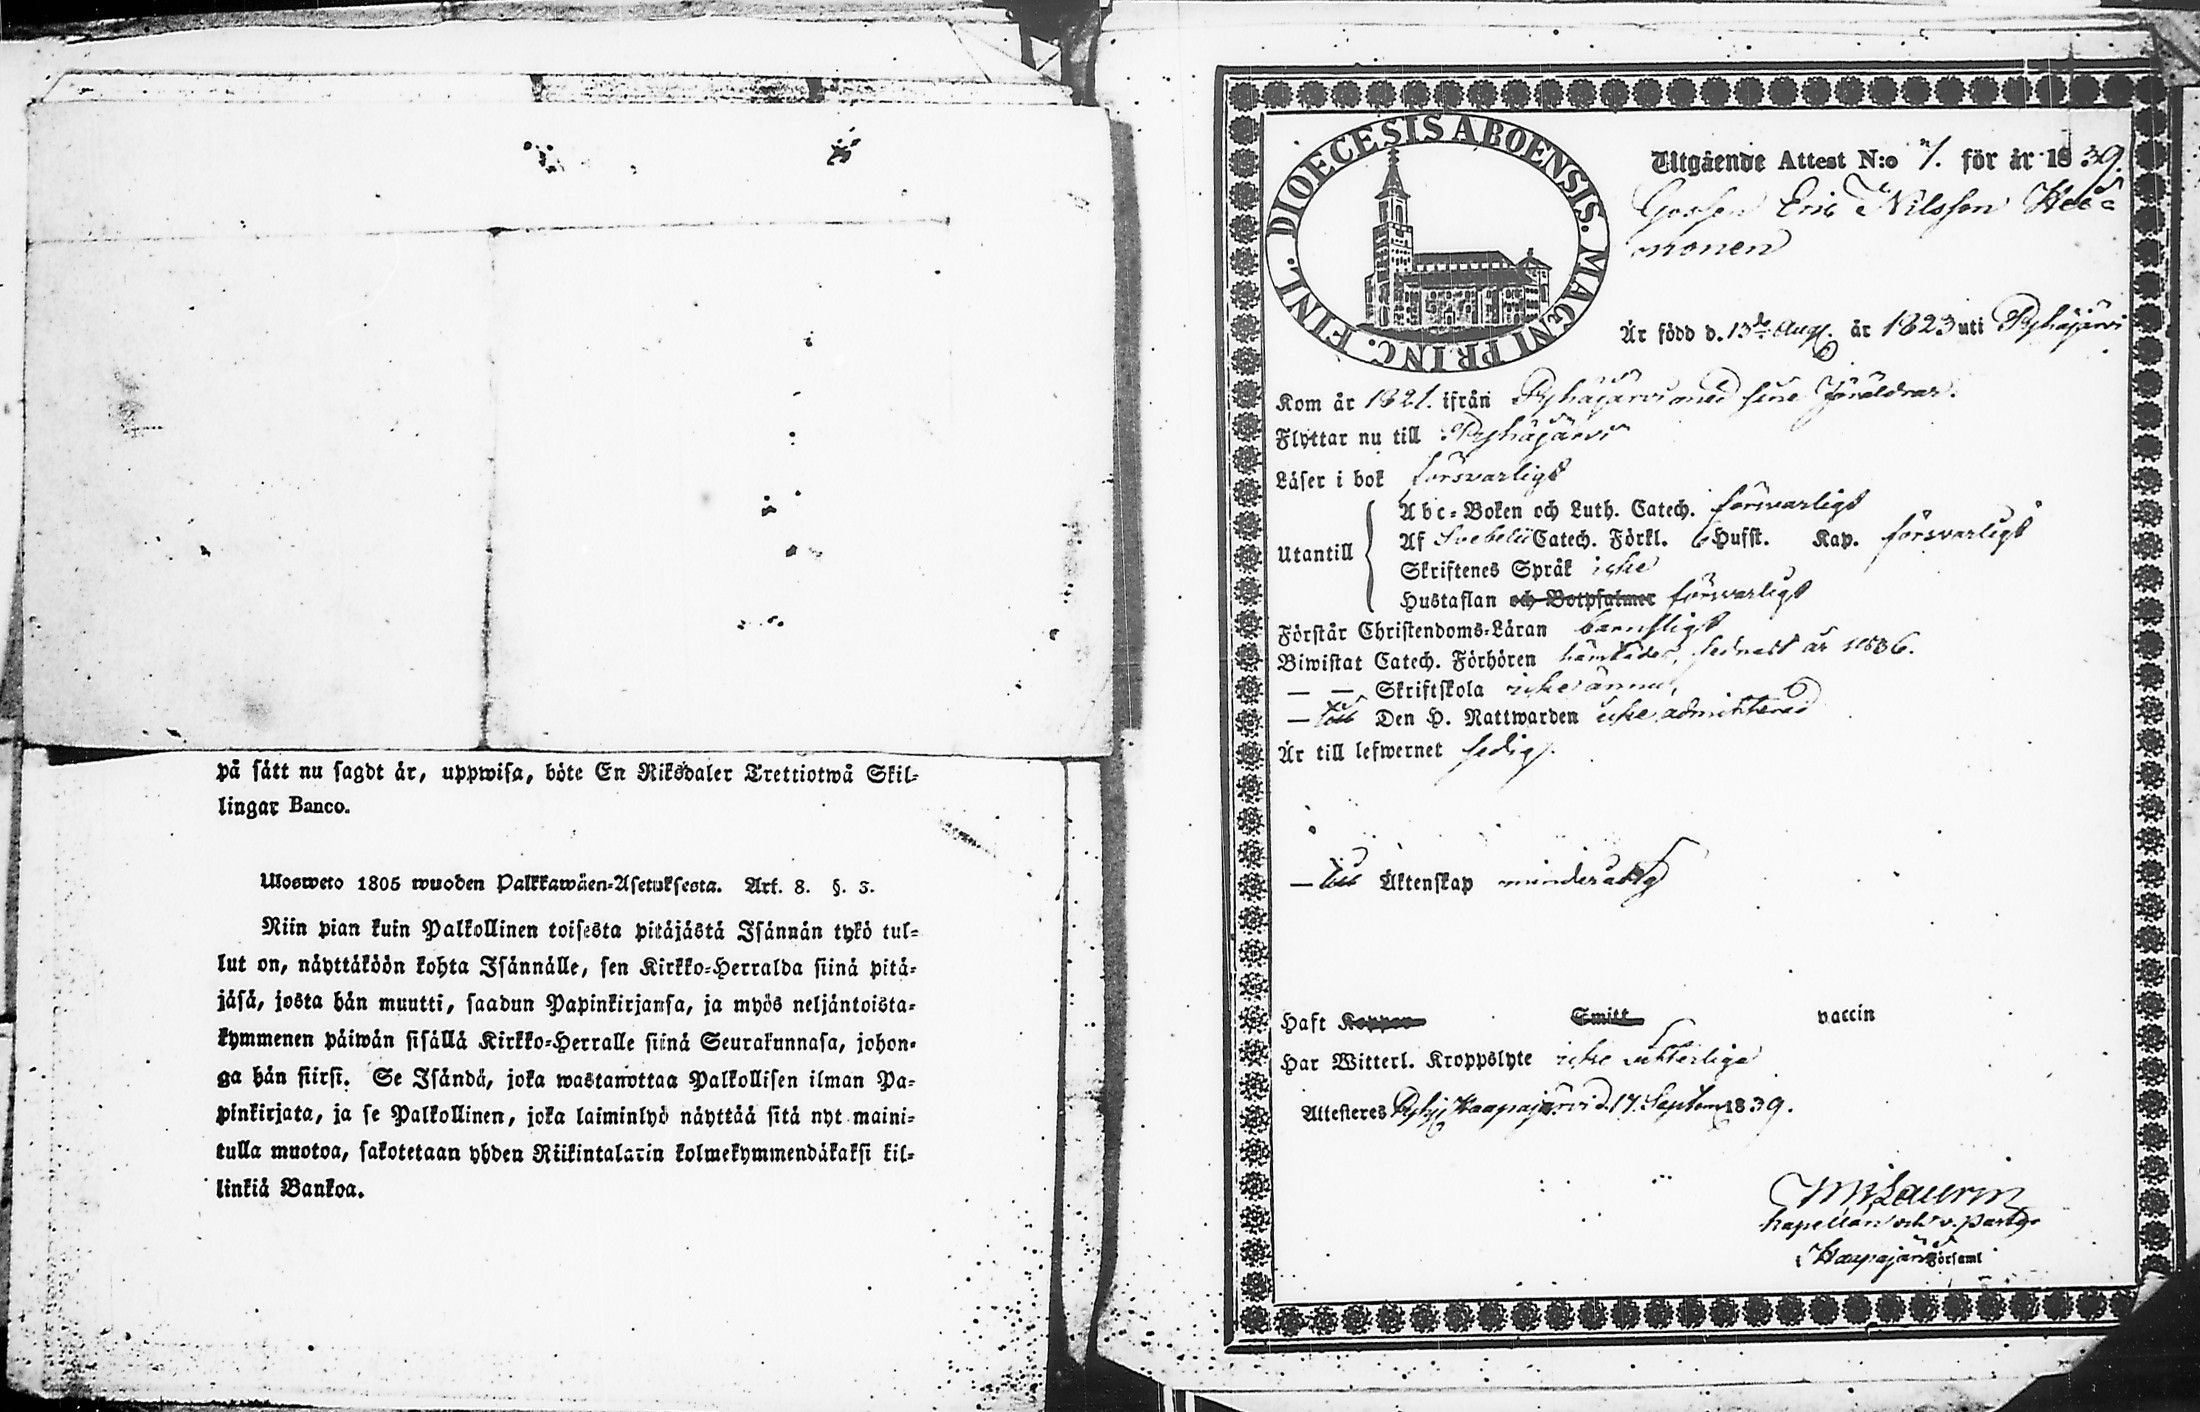 på sätt nu sagdt är, uppwisa, böte En Riksdaler Trettiotwå Skil-
lingar Banco.
Ulosweto 1805 wuoden Palkkawäen-Asetuksesta. Art. 8. §. 3.
Niin pian kuin Palkollinen toisesta pitäjästä Isännän tykö tul-
lut on, näyttäköön kohta Isännälle, sen Kirkko-Herralda siinä pitä-
jäsä, josta hän muutti, saadun Papinkirjansa, ja myös neljäntoista-
kymmenen päiwän sisällä Kirkko-Herralle siinä Seurakunnasa, johon-
ga hän siirsi. Se Isändä, joka wastanottaa Palkollisen ilman Pa-
pinkirjata, ja se Palkollinen, joka laiminlyö näyttää sitä nyt maini-
tulla muotoa, sakotetaan yhden Riikintalarin kolmekymmendäkaksi kil-
linkiä Bankoa.
DIOECESIS ABOENSIS. MAGNI PRINC. FINL.
Utgående Attest N:o 7. för år 1839.
Gossen Eric Nilsson Hee-
monen
Är född d. 13de Aug. år 1823 uti Pyhäjärvi
Kom år 1821. ifrån Pyhäjärvi med sine föräldrar.
Flyttar nu till Pyhäjärvi
Läser i bok försvarligt
Utantill
Abc-Boken och Luth. Catech. försvarligt
Af Svebelii Catech. Förkl. 6 Hufst. Kap. försvarligt
Skriftenes Språk icke
Hustaflan och Botpsalmer försvarligt
Förstår Christendoms-Läran barnsligt
Biwistat Catech. Förhören sednast år 1836.
— — Skriftskola icke ännu,
— till Den H. Nattwarden icke admitterad
Är till lefwernet sedig.
— till Äktenskap minderårig
Haft Koppor Smitt vaccin
Har Witterl. Kroppslyte icke witterliga
Attesteres Pyhj Haapajärvi d. 17. Septem 1839.
Laurin
kapellan och v. past.
Haapajärvi Församl